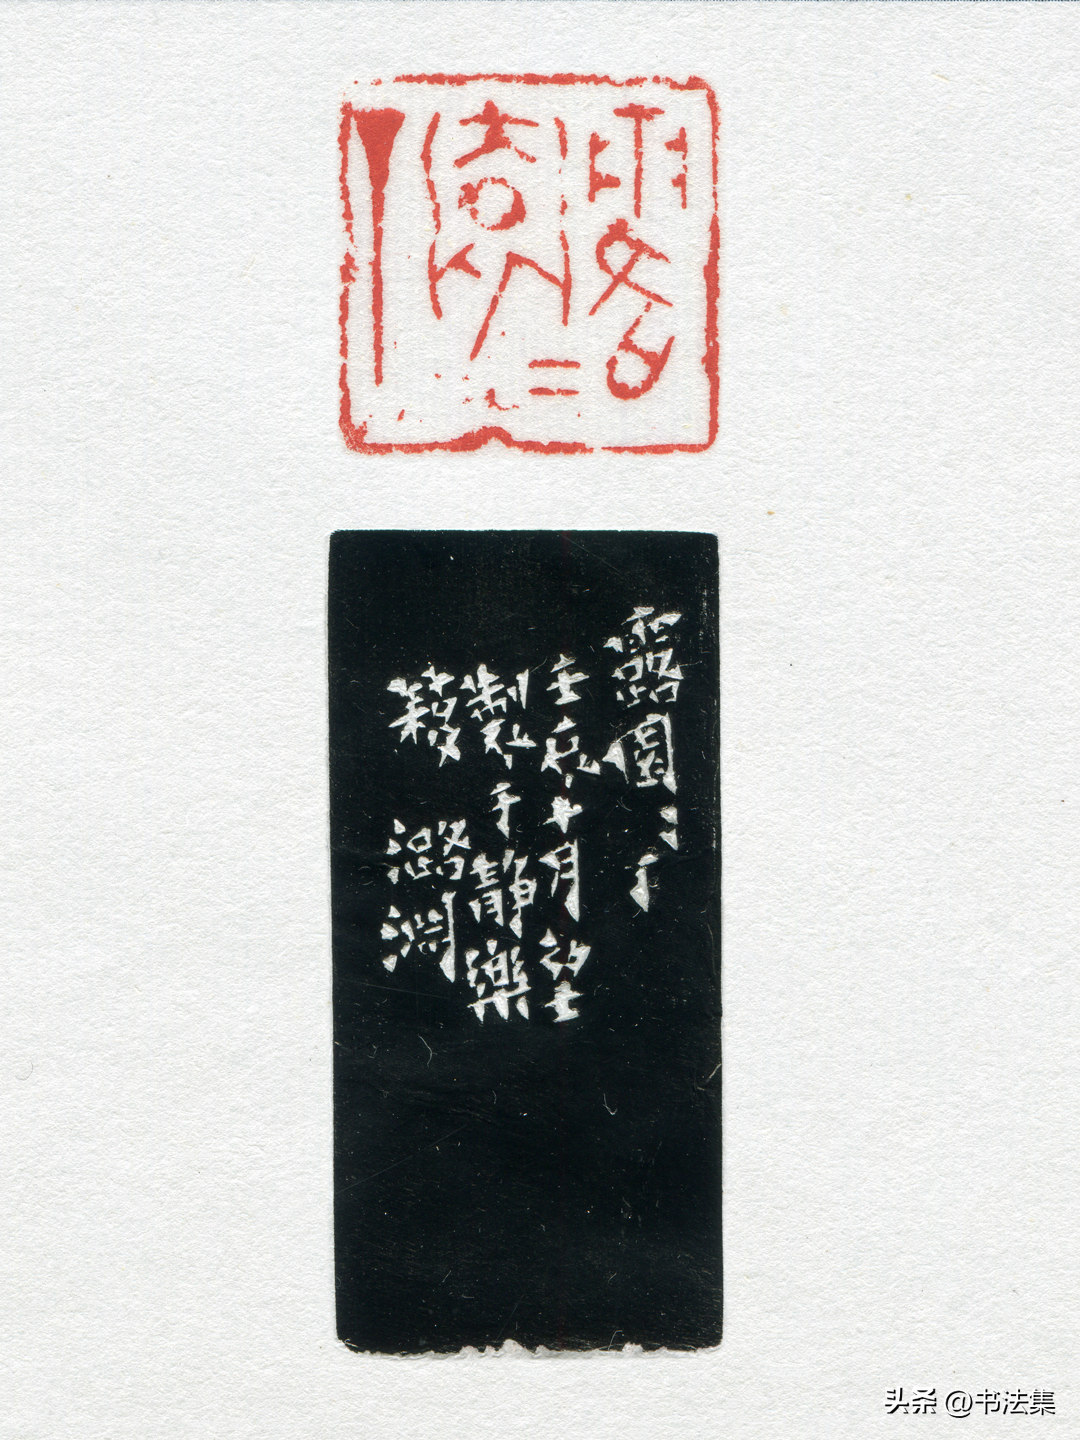 露園=丁
露園:丁
壬辰十月望
製于靜樂
簃 潞淵
头条 @书法集